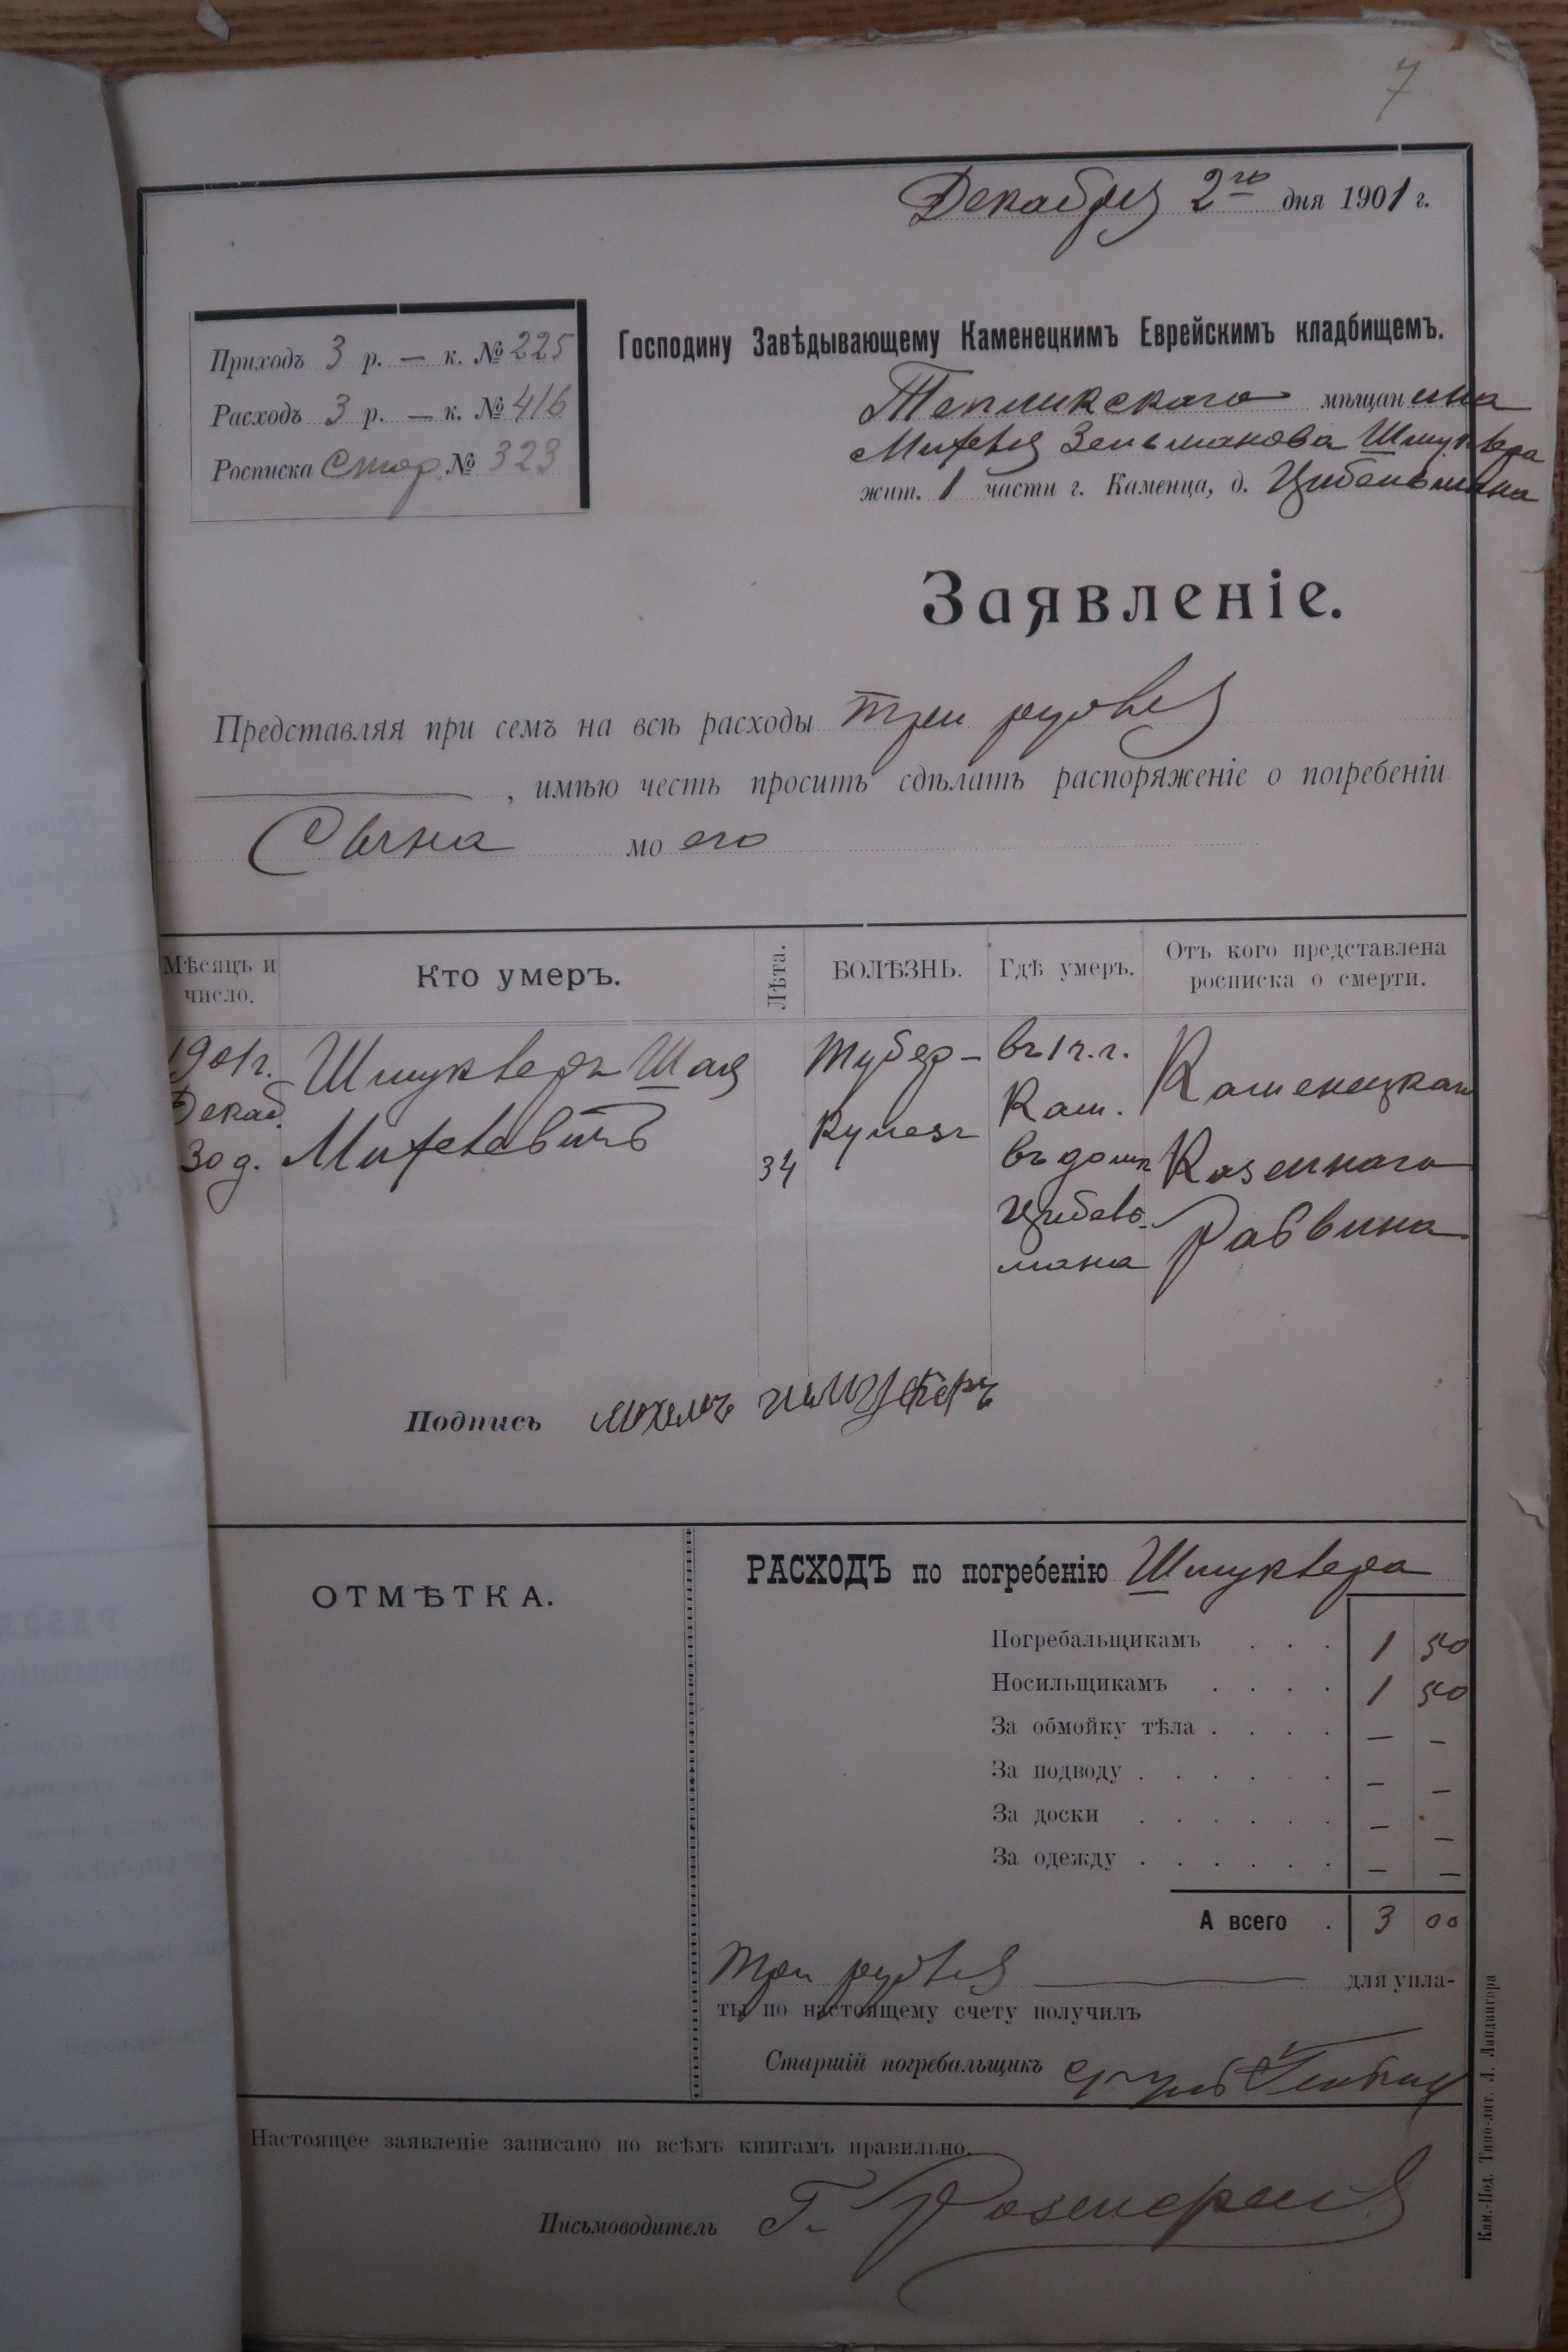 7
Декабря 2го дня 1901 г.
Приходъ 3 р. — к. № 225
Расходъ 3 р. — к. № 416
Росписка Стар. № 323
Господину Завѣдывающему Каменецкимъ Еврейскимъ кладбищемъ.
Тепликскаго мѣщанина
Михеля Зельманова Шмуклера
жит. 1 части г. Каменца, д. Цибельмана
Заявленіе.
Представляя при семъ на всѣ расходы три рубля
, имѣю честь просить сдѣлать распоряженіе о погребеніи
Сына моего
Мѣсяцъ и число. Кто умеръ. Лѣта. БОЛѢЗНЬ. Гдѣ умеръ. Отъ кого представлена росписка о смерти.
1901г. Шмуклеръ Шая Тубер- въ 1 ч. г. Каменецкаго
Декаб. Кам.
30 д. Михелевичъ 34 кулезъ въ домѣ Казеннаго
Цибель-
мана Раввина
Подпись Михель Шмуклеръ
ОТМѢТКА.
РАСХОДЪ по погребенію Шмуклера
Погребальщикамъ . . . 1 50
Носильщикамъ . . . . 1 50
За обмойку тѣла . . . . — —
За подводу . . . . . . — —
За доски . . . . . . — —
За одежду . . . . . . — —
А всего . 3 00
Три рубля для упла-
ты по настоящему счету получилъ
Старшій погребальщикъ
Настоящее заявленіе записано по всѣмъ книгамъ правильно.
Письмоводитель Г.
Кам.-Под. Типо-лит. Л. Ландвигера